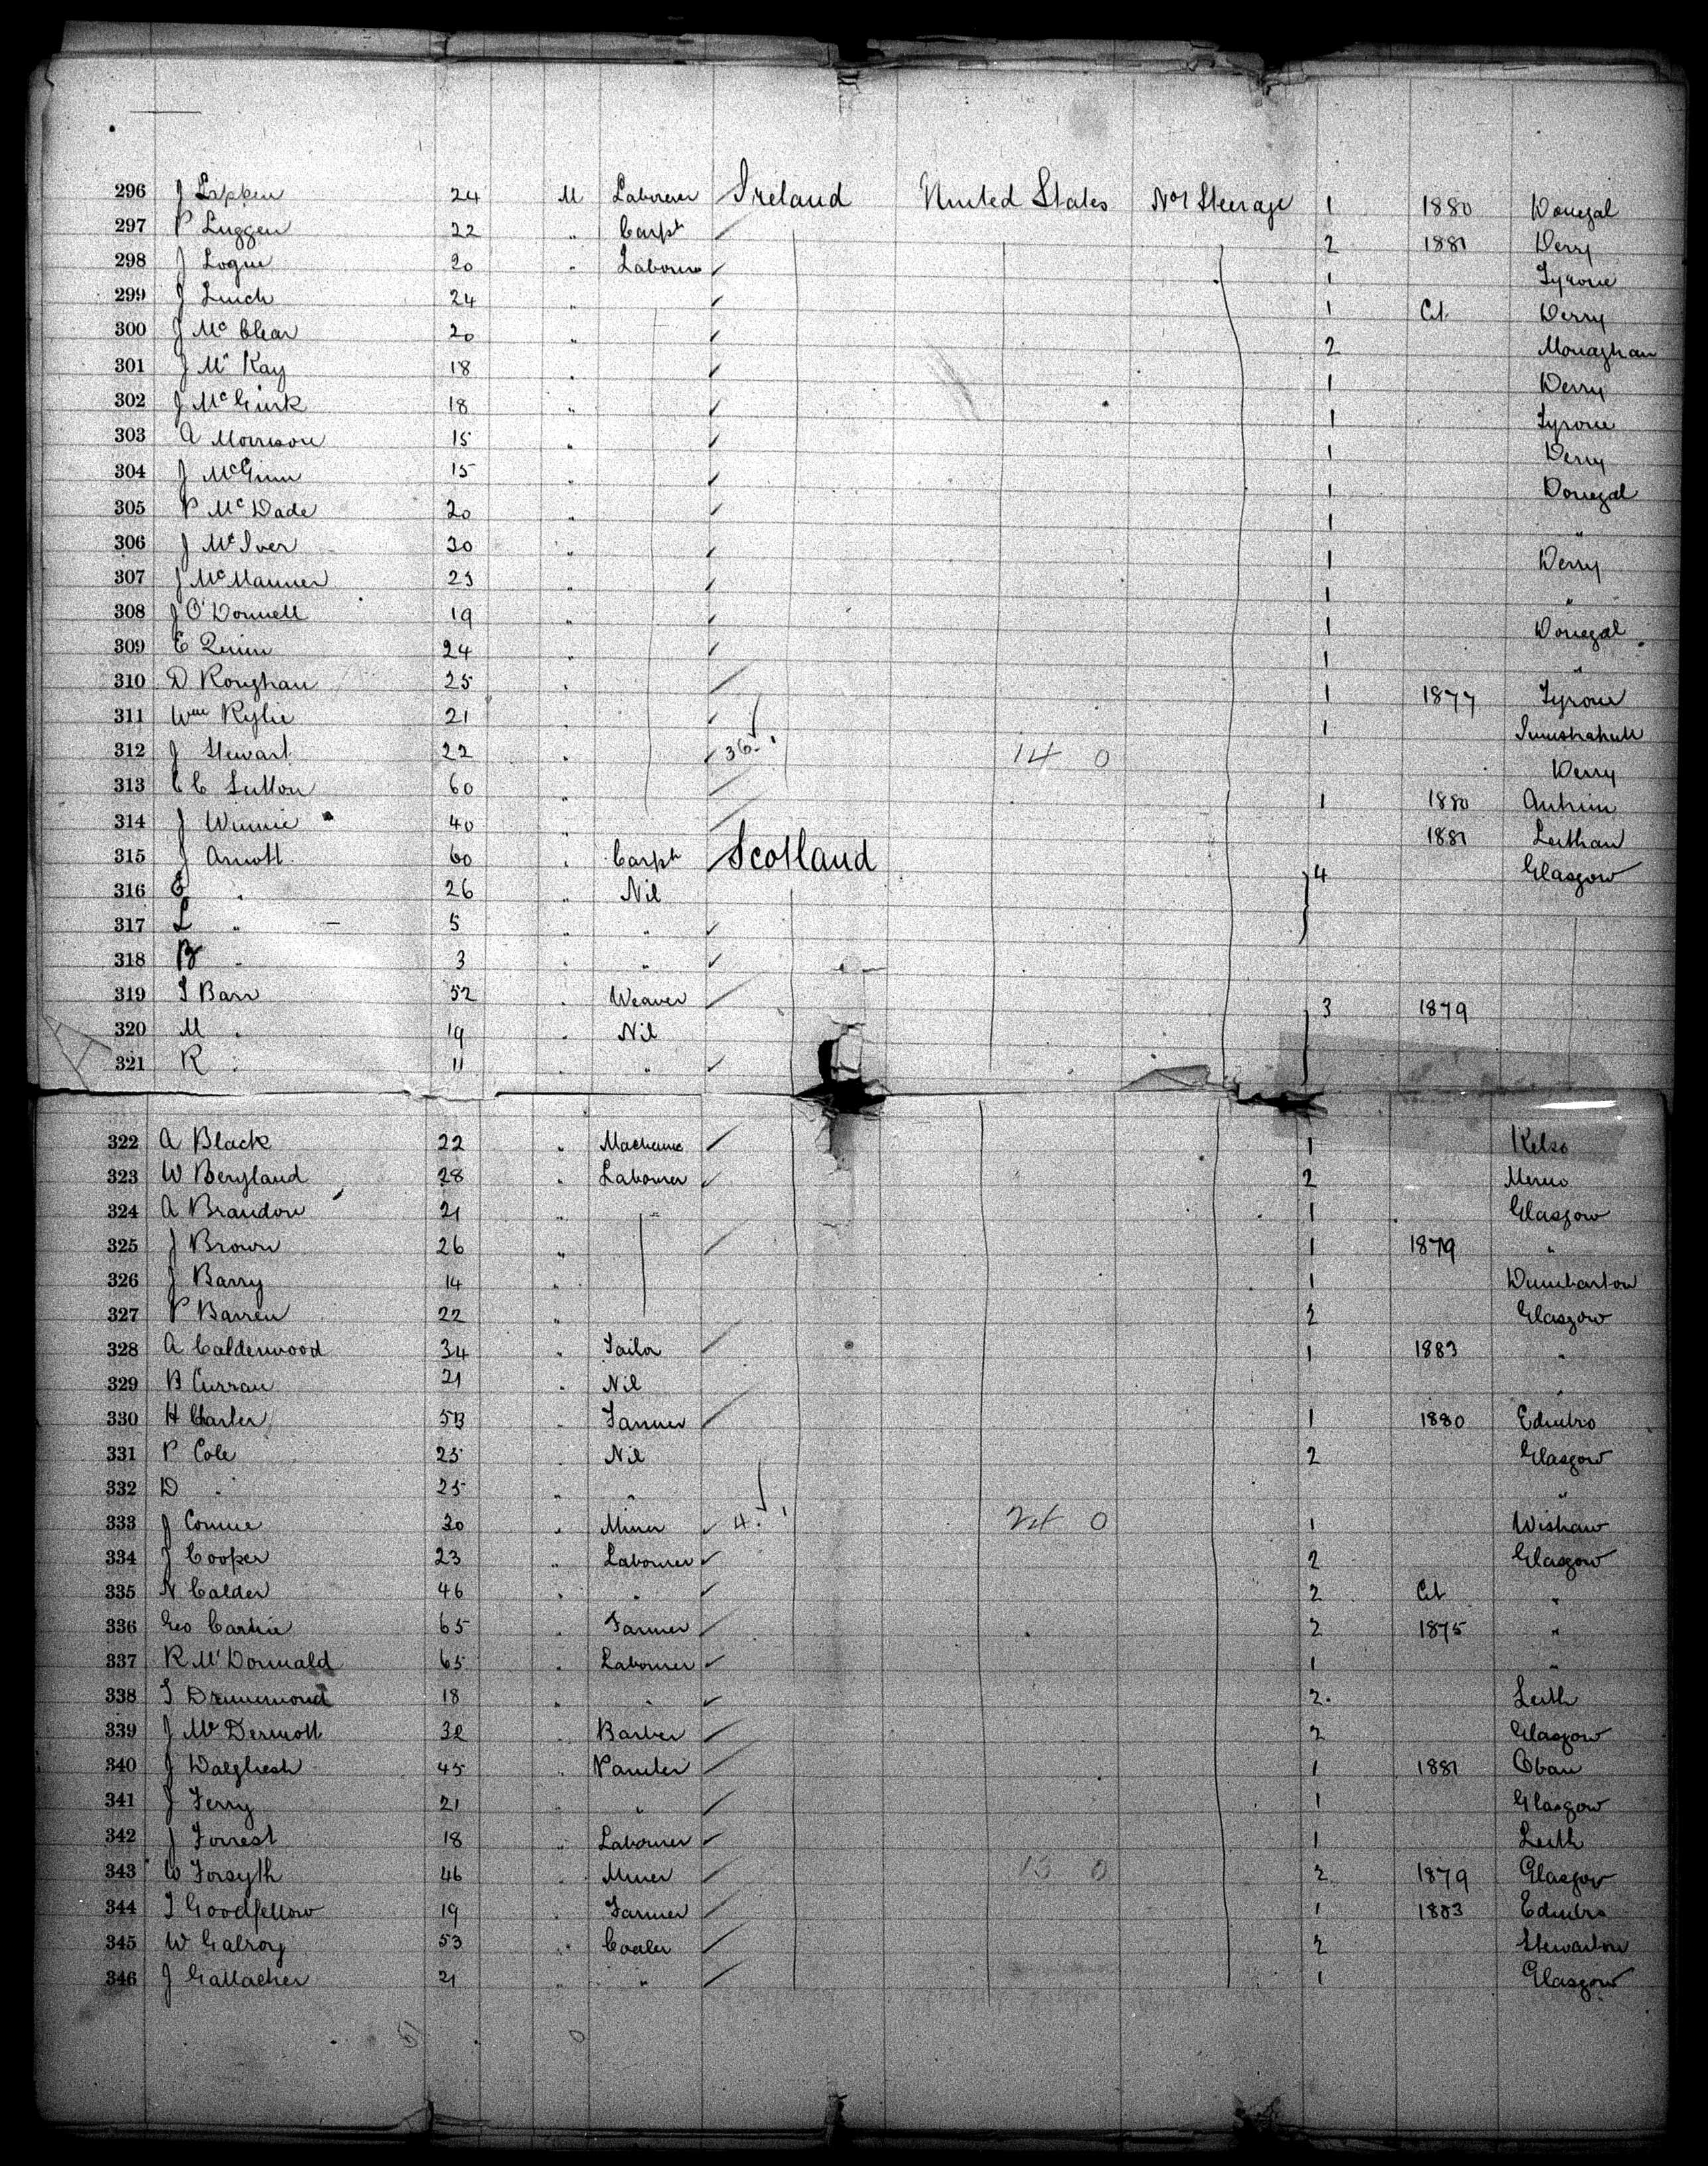 296 J Lipken 24 M Laborer Ireland United States No 1 Steerage 1 1880 Donegal
297 P Luggen 22 " Carpt 2 1881 Derry
298 J Logue 20 " Laborer 1 Tyrone
299 J Linch 24 " 1 Ct. Derry
300 J Mc Clear 20 " 2 Monaghan
301 J Mc Kay 18 " 1 Derry
302 J McGurk 18 " 1 Tyrone
303 A Morrison 15 " 1 Derry
304 J McGinn 15 " 1 Donegal
305 P McDade 20 " 1 "
306 J McIver 30 " 1 Derry
307 J McManner 23 " 1 "
308 J O'Donnell 19 " 1 Donegal
309 E Quinn 24 " 1 "
310 D Roughan 25 " 1 1877 Tyrone
311 Wm Kylie 21 " 1
312 J Stewart 22 " 36 14 0 Derry
313 C C Sutton 60 " 1 1880 Antrim
314 J Winnie 40 " 1881
315 J Arnott 60 " Carpt Scotland 4 Glasgow
316 E " 26 " Nil
317 L " 5 " "
318 B " 3 " "
319 J Barr 52 " Weaver 3 1879
320 M " 19 " Nil
321 R " 11 " "
322 A Black 22 " Mechanic 1 Kelso
323 W Beryland 28 " Laborer 2
324 A Brandon 21 " 1 Glasgow
325 J Brown 26 " 1 1879 "
326 J Barry 14 " 1 Dumbarton
327 P Barren 22 " 2 Glasgow
328 A Calderwood 34 " Tailor 1 1883 "
329 B Curran 21 " Nil "
330 H Charter " Farmer 1 1880 Edinbro
331 P Cole 25 " Nil 2 Glasgow
332 D " 25 " " "
333 J Comrie 30 " Miner 4 24 0 1 Wishaw
334 J Cooper 23 " Laborer 2 Glasgow
335 N Calder 46 " " 2 Ct "
336 Geo Cartrie 65 " Farmer 2 1875 "
337 R McDonnald 65 " Laborer 1 "
338 J Drummond 18 " " 2 Leith
339 J McDermott 32 " Barber 2 Glasgow
340 J Dalgliesh 45 " Painter 1 1881 Oban
341 J Ferry 21 " " 1 Glasgow
342 J Forrest 18 " Laborer 1 Leith
343 W Forsyth 46 " Miner 13 0 2 1879 Glasgow
344 J Goodfellow 19 " Farmer 1 1883 Edinbro
345 W Galroy 53 " Cooler 2 Stewarton
346 J Gallacher 21 " " 1 Glasgow